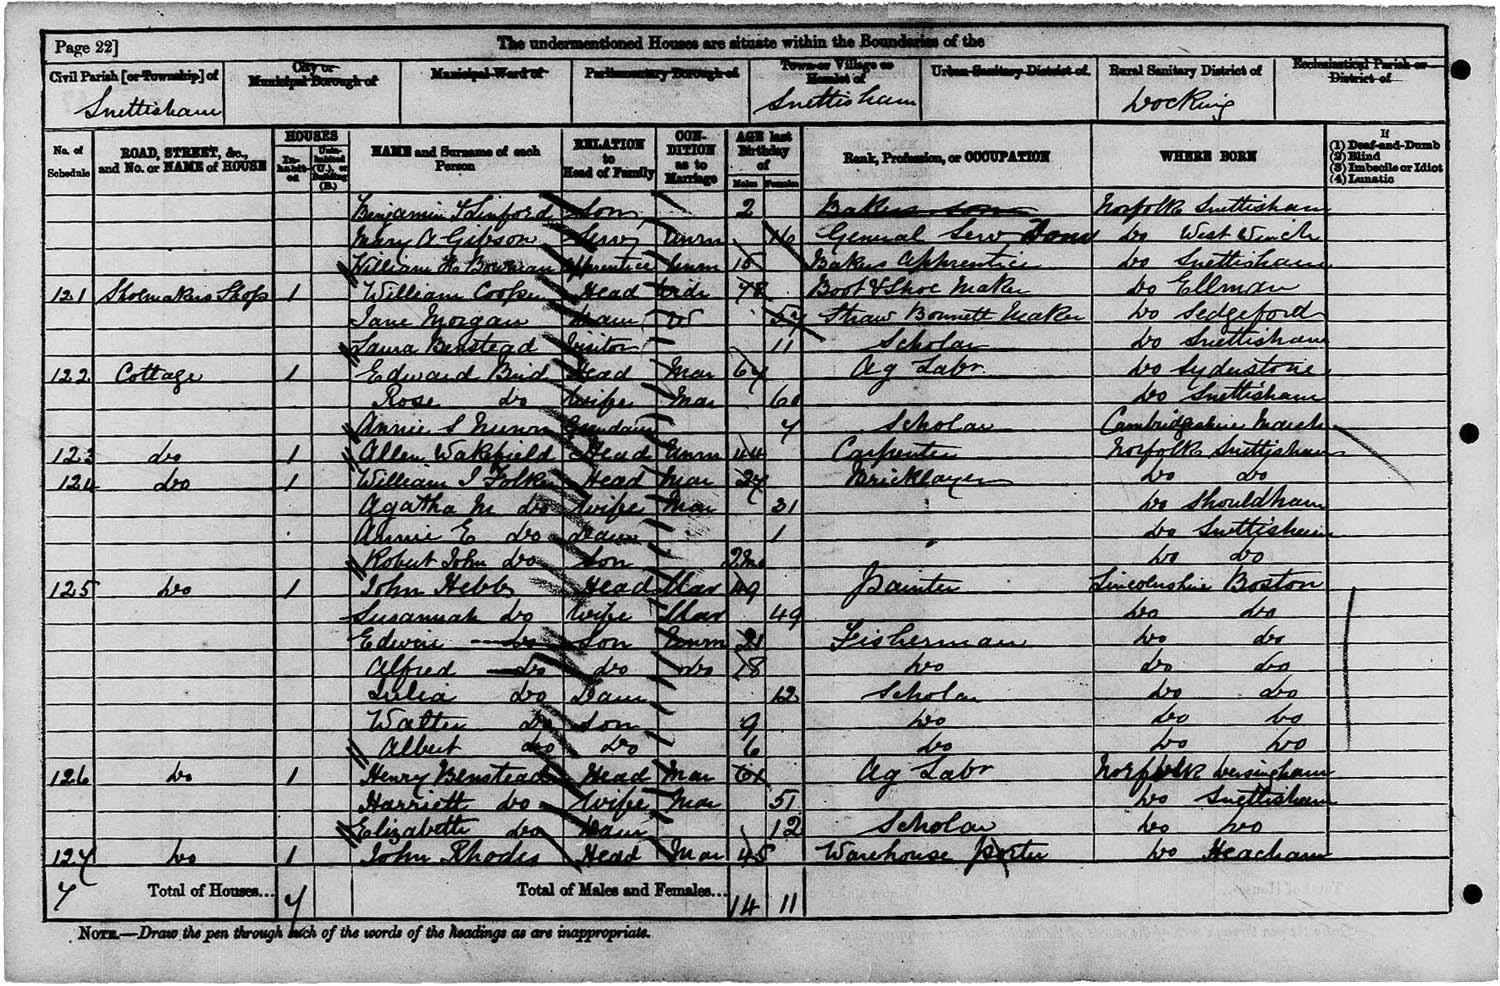 Page 22]
The undermentioned Houses are situate within the Boundaries of the
Civil Parish [or Township] of
City or Municipal Borough of
Municipal Ward of
Parliamentary Borough of
Town or Village or Hamlet of
Urban Sanitary District of
Rural Sanitary District of
Ecclesiastical Parish or District of
Snettisham Snettisham Docking
No. of Schedule
ROAD, STREET, &c., and No. or NAME of HOUSE
HOUSES
In-habit-ed
Unin-habited (U.), or Building (B.)
NAME and Surname of each Person
RELATION to Head of Family
CON-DITION as to Marriage
AGE last Birthday of
Males Females
Rank, Profession, or OCCUPATION
WHERE BORN
If
(1) Deaf-and-Dumb
(2) Blind
(3) Imbecile or Idiot
(4) Lunatic
Benjamin Son 2 Bakers son Norfolk Snettisham
Mary A Gibson Serv Unm 16 General Serv Dom Do West Winch
William H Bowman Apprentice Unm 15 Bakers Apprentice Do Snettisham
121 Shoemakers Shop 1 William Cooper Head Widr 78 Boot & Shoe Maker Do Ellman
Jane Morgan Daur W 57 Straw Bonnett Maker Do Sedgeford
Laura Benstead Visitor 11 Scholar Do Snettisham
122 Cottage 1 Edward Bird Head Mar 67 Ag Labr Do Syderstone
Rose do Wife Mar 60 Do Snettisham
Annie S Nunn Grandaur 7 Scholar Cambridgeshire March
123 do 1 Allen Wakefield Head Unm 44 Carpenter Norfolk Snettisham
124 do 1 William J Folker Head Mar 27 Bricklayer Do do
Agatha M do Wife Mar 31 Do Shouldham
Annie E do Daur 1 Do Snettisham
Robert John do Son 2Mo Do do
125 Do 1 John Hebb Head Mar 49 Painter Lincolnshire Boston
Susannah do Wife Mar 49 Do do
Edwin do Son Unm 21 Fisherman Do do
Alfred do do do 18 Do Do do
Julia do Daur 12 Scholar Do do
Walter do Son 9 Do Do Do
Albert do Do 6 Do Do Do
126 Do 1 Henry Benstead Head Mar 61 Ag Labr Norfolk Dersingham
Harriett do Wife Mar 51 Do Snettisham
Elizabeth do Daur 12 Scholar Do Do
127 Do 1 John Rhodes Head Mar 45 Warehouse Porter Do Heacham
7 Total of Houses... 7 Total of Males and Females... 14 11
NOTE.—Draw the pen through such of the words of the headings as are inappropriate.